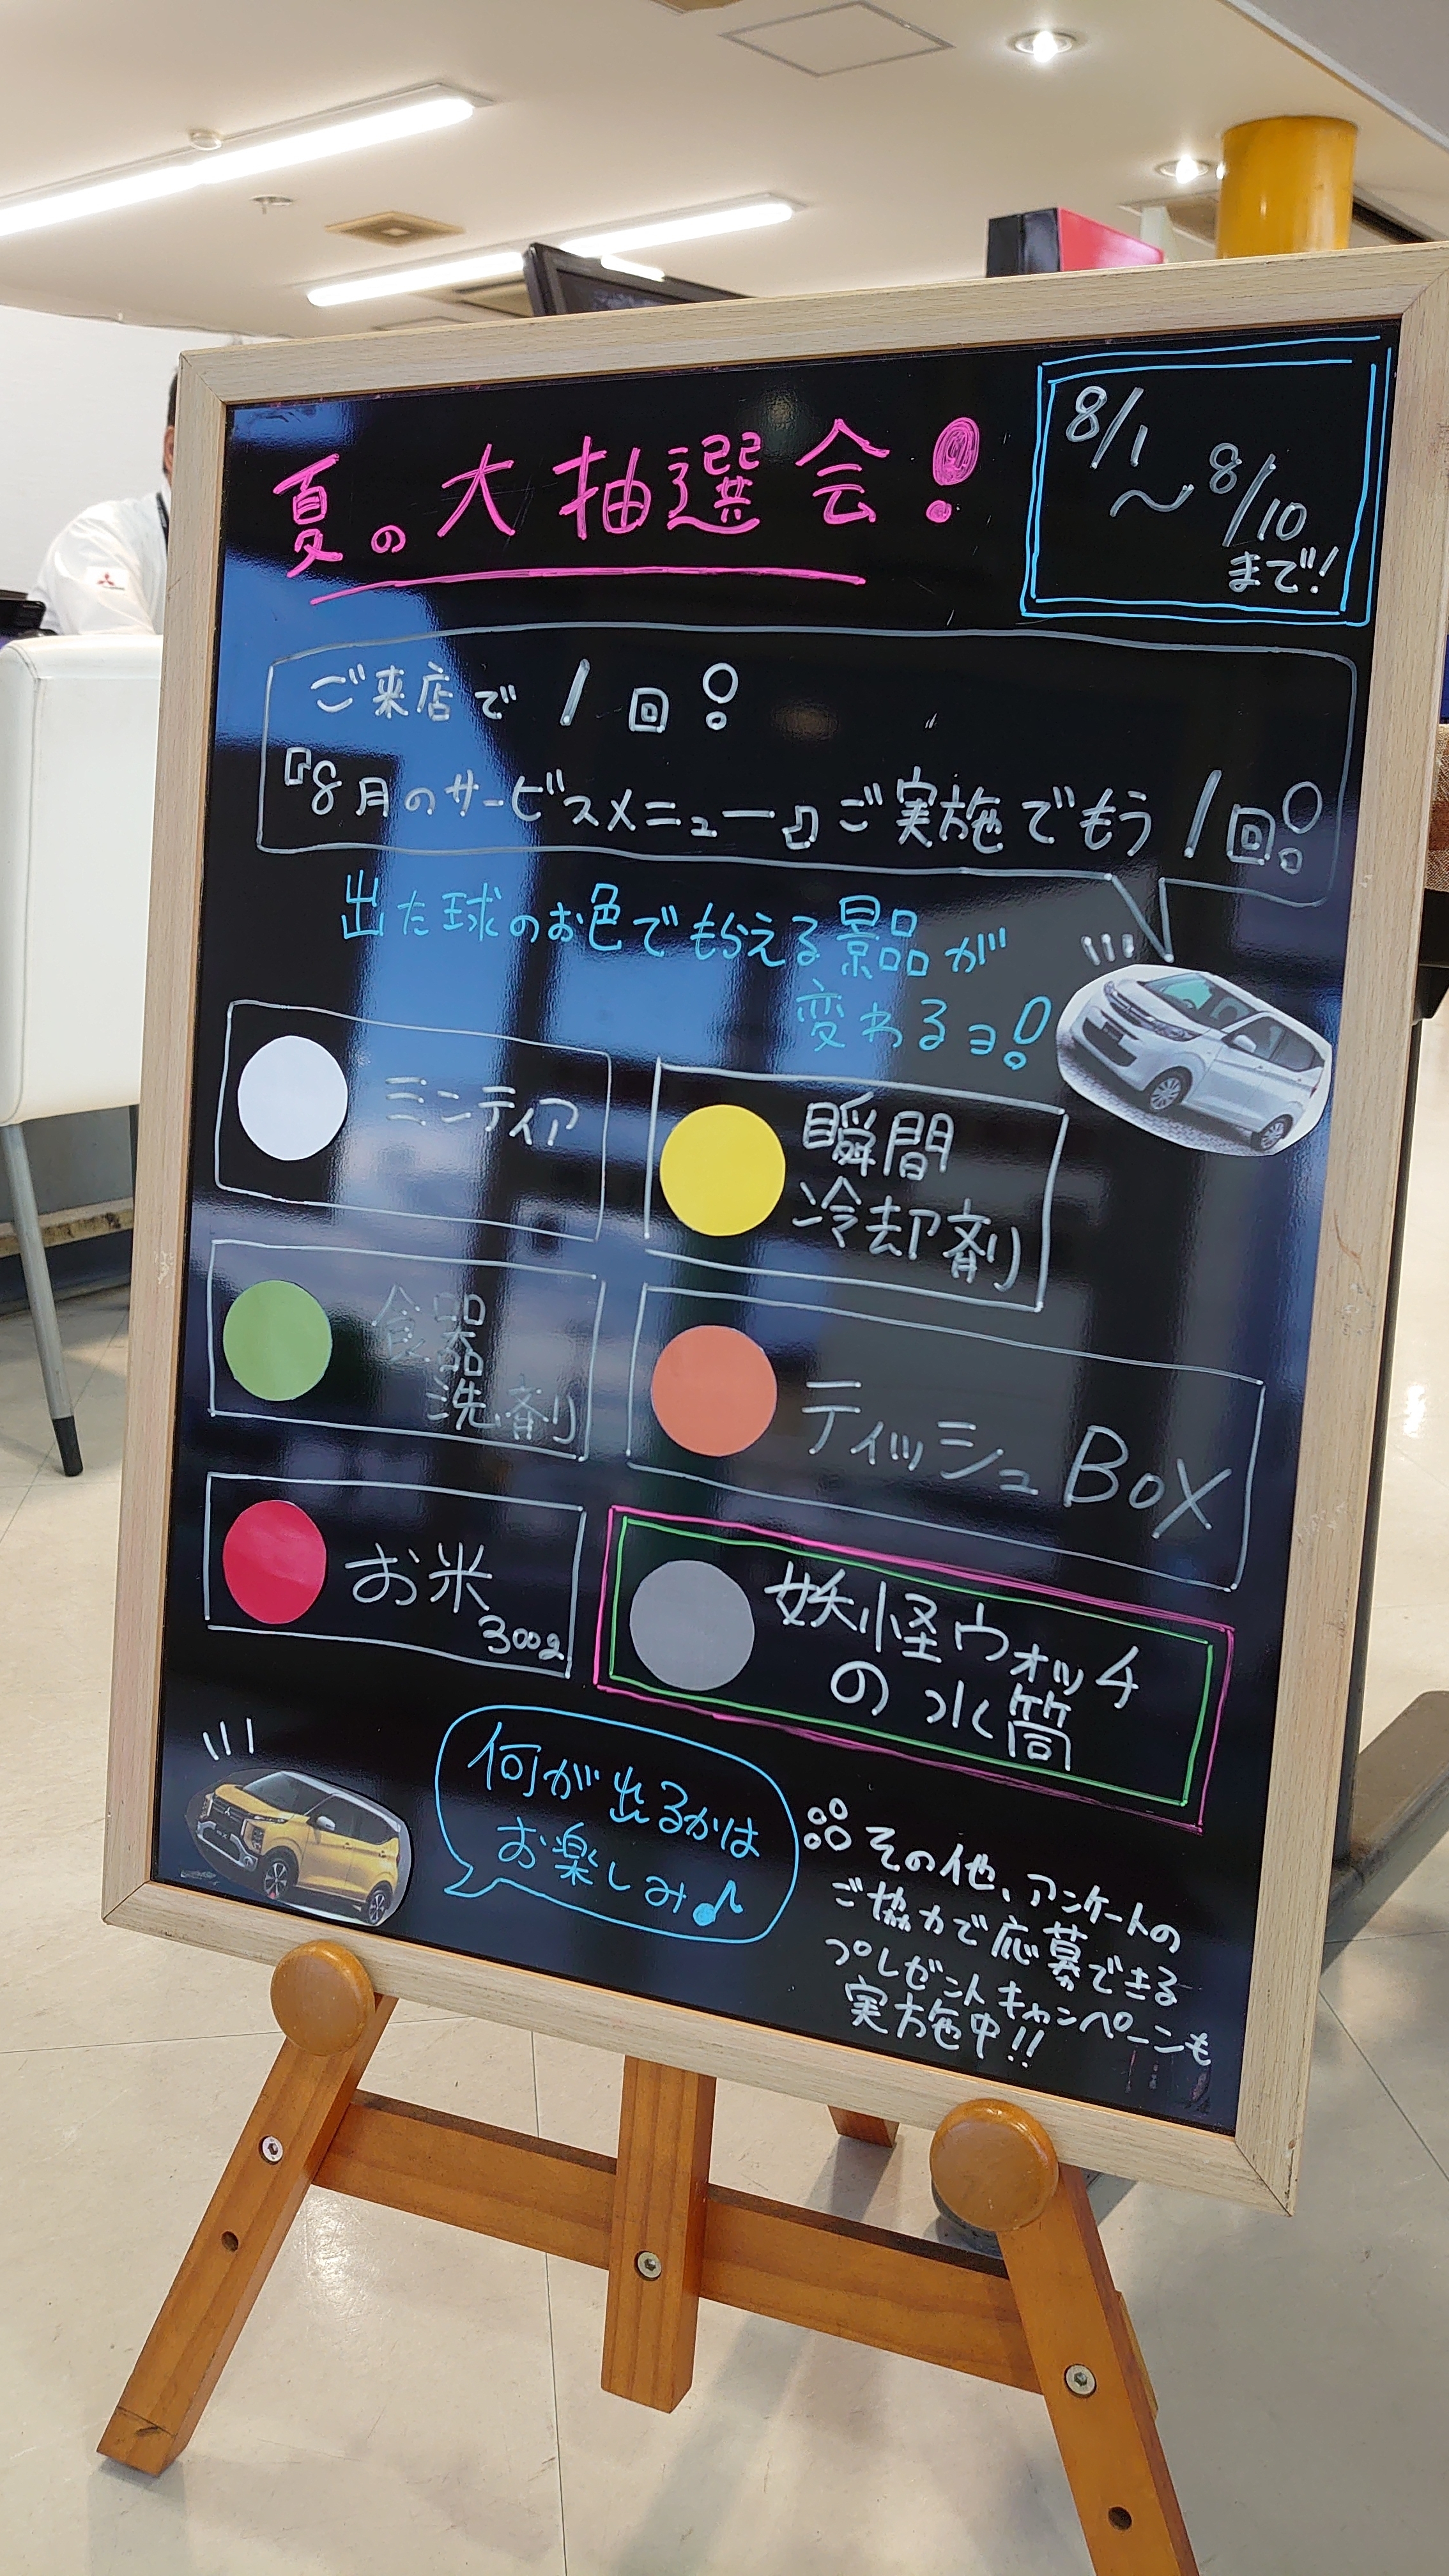 夏の大抽選会!
8/1
〜8/10
まで!
ご来店で1回!
『8月のサービスメニュー』ご実施でもう1回!
出た球のお色でもらえる景品が
変わるヨ!
ミンティア
瞬間
冷却剤
食器
洗剤
ティッシュBOX
お米
300g
妖怪ウォッチ
の水筒
何が出るかは
お楽しみ♪
その他、アンケートの
ご協力で応募できる
プレゼントキャンペーンも
実施中!!